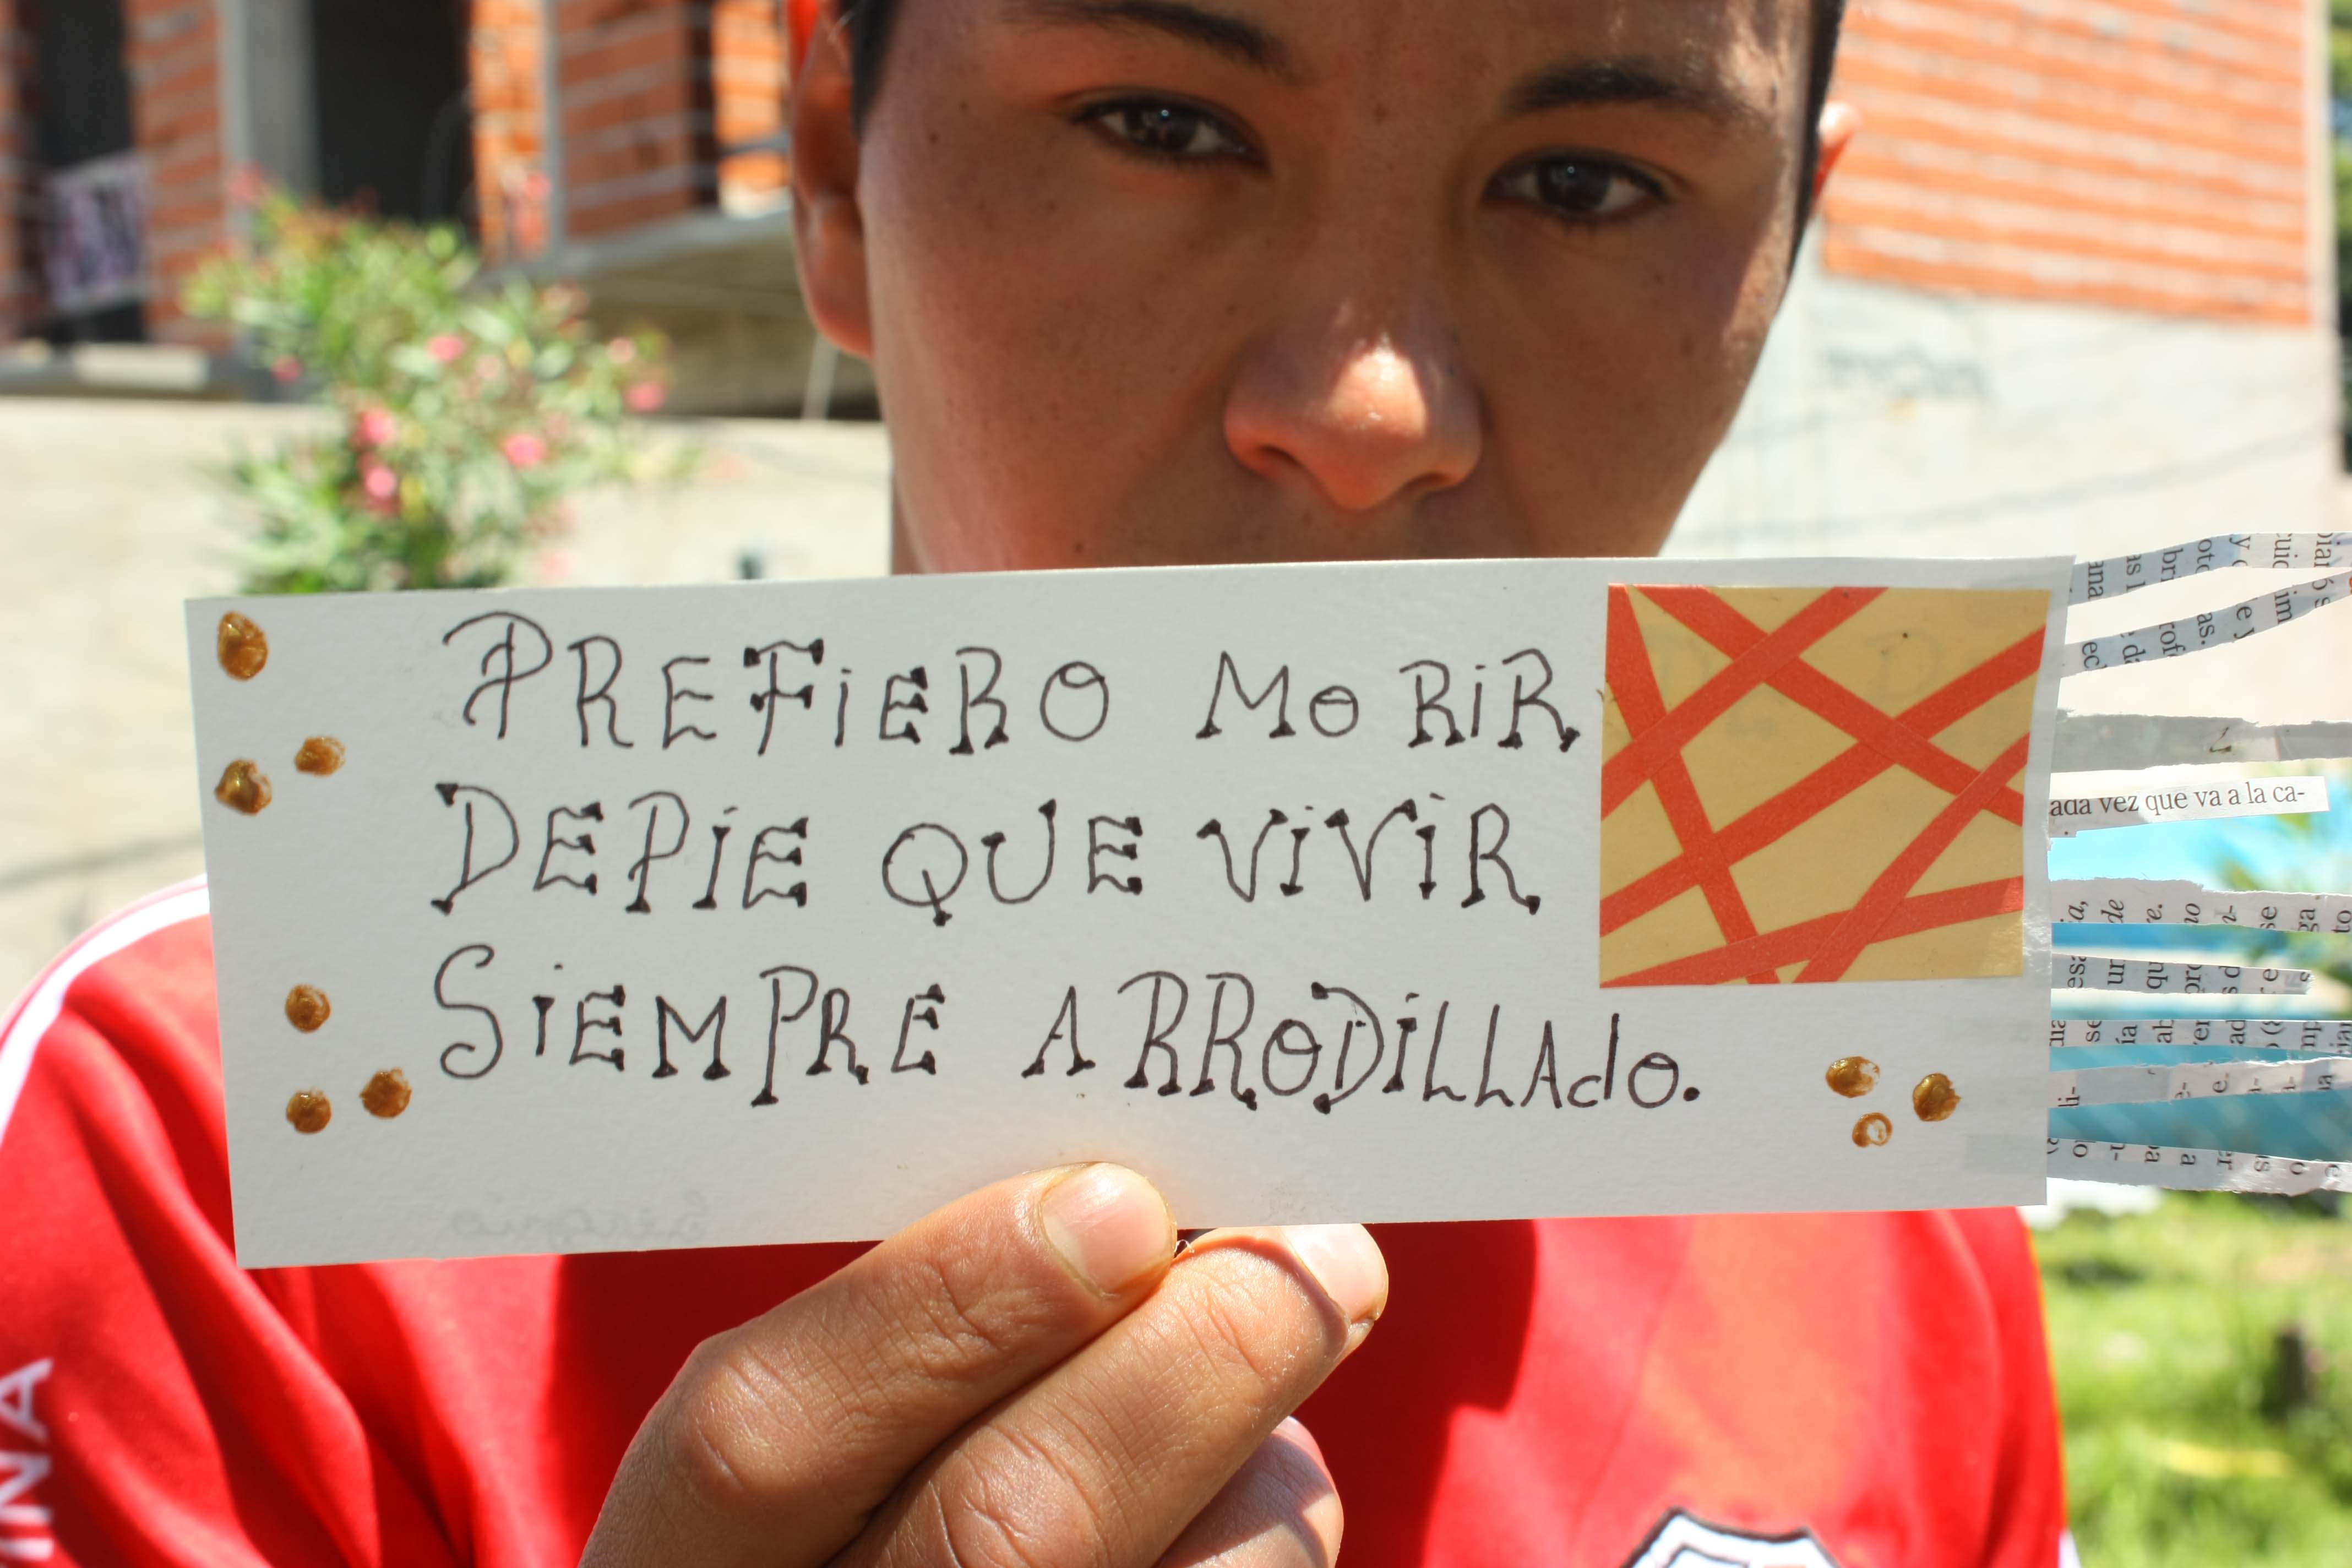 PREFiERO MORiR
DEPiE QUE ViViR
SiEMPRE ARRODiLLAdo.
ada vez que va a la ca-
INA